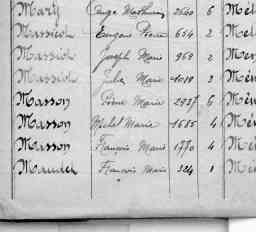 Mary Ange Mathurin 2640 6 Mél
Massicot Eugène Pierre 654 2 Mel
Massicot Joseph Marie 969 2 Mér
Massicot Jules Marie 1018 2 Mér
Masson Pierre Marie 2937 6 Mér
Masson Michel Marie 1685 4 Mér
Masson François Marie 1770 4 Mér
Maudet François Marie 324 1 Mér